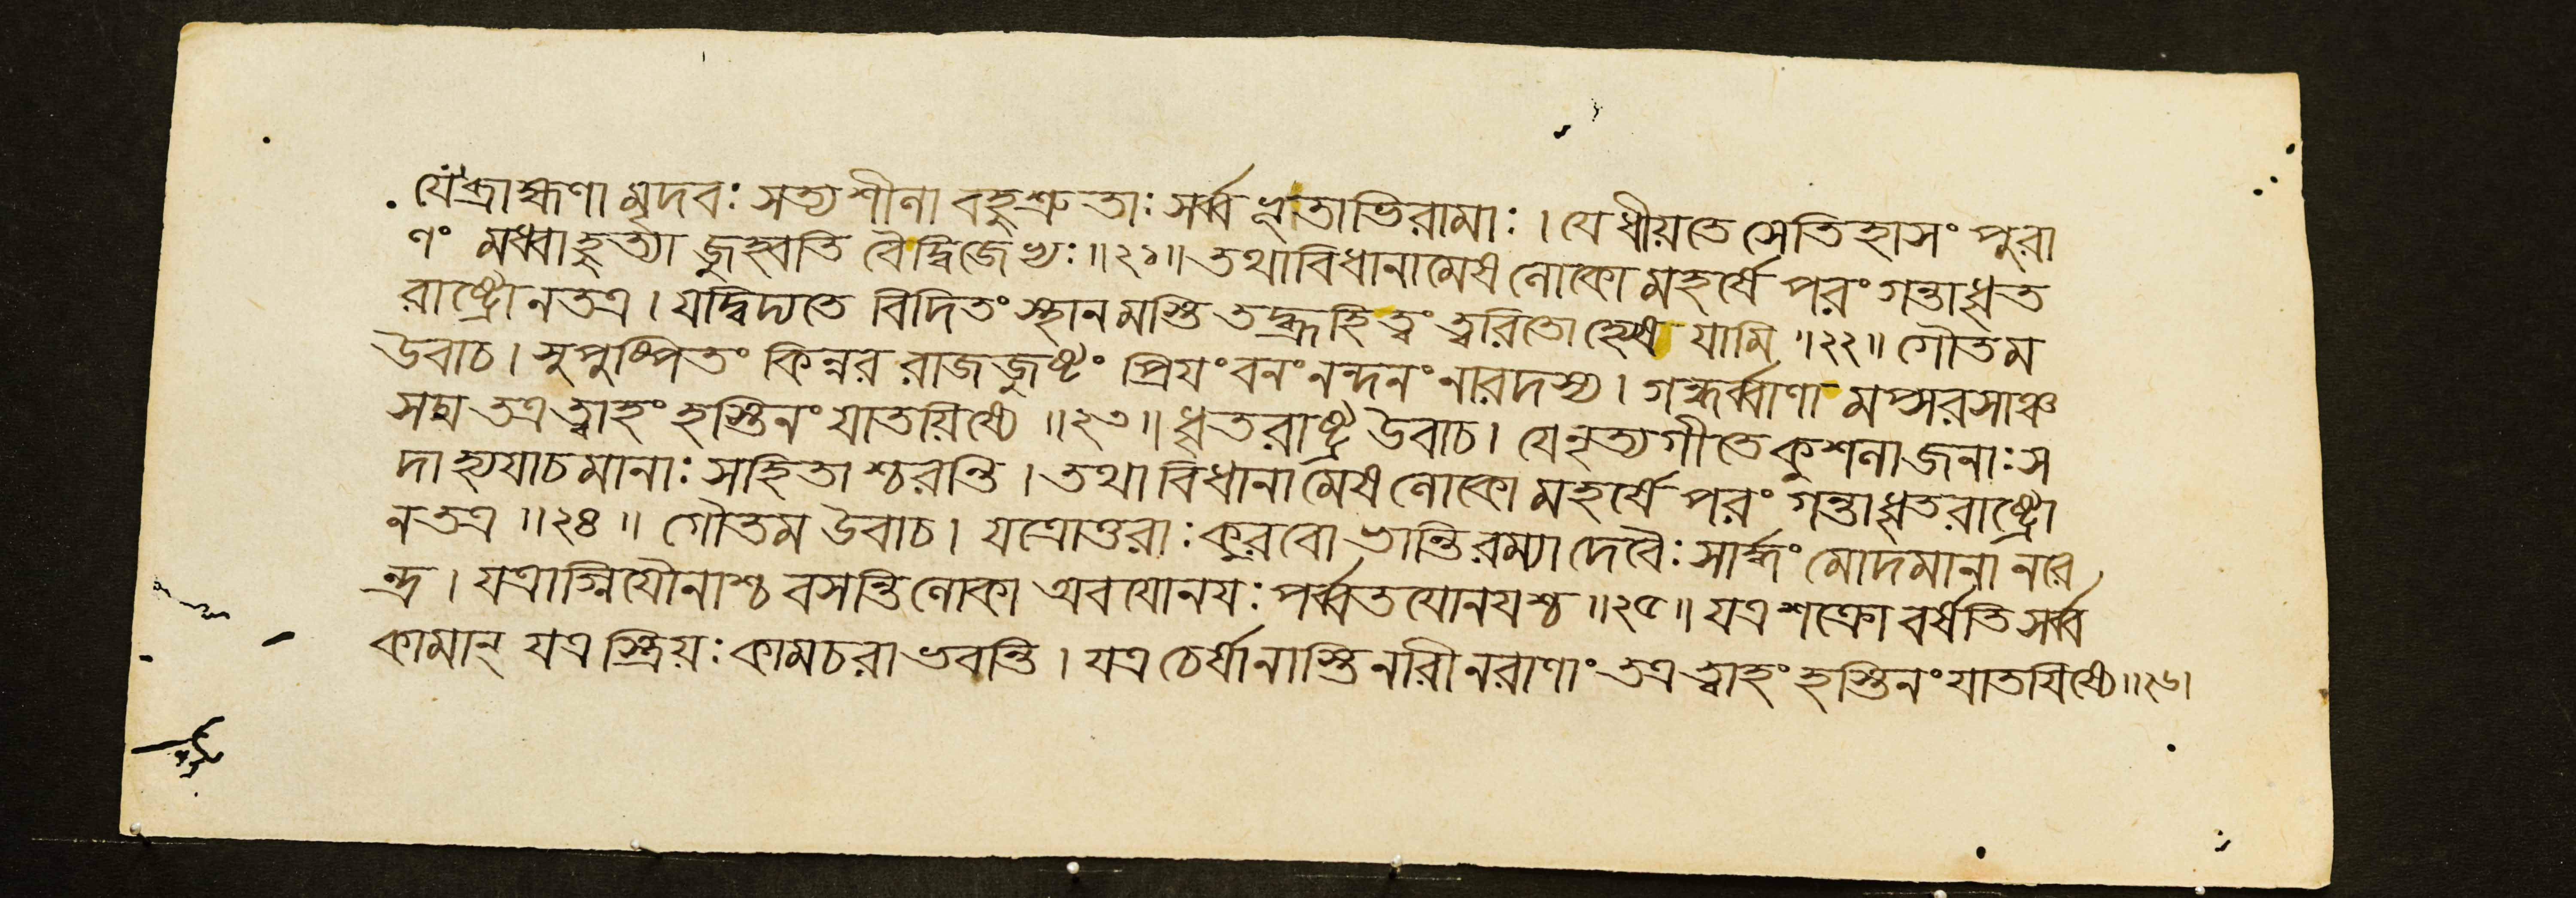 যেব্রাহ্মণা মৃদবঃ সত্যশীলা বহুশ্রুতাঃ সর্ব্বভূতাভিরামাঃ । যেধীয়তে সেতিহাসং পুরা
ণং মধ্বাহুত্যা জুহ্বতি বৈদ্বিজেভ্যঃ ॥২১॥ তথাবিধানামেষ লোকো মহর্ষে পরং গন্তাধৃত
রাষ্ট্রোনতত্র । যদ্বিদ্যতে বিদিতং স্থানমস্তি তদ্ব্রূহিত্বং ত্বরিতো হ্যেষ যামি ॥২২॥ গৌতম
উবাচ । সুপুষ্পিতং কিন্নর রাজজুষ্টং প্রিয়ং বনং নন্দনং নারদস্য । গন্ধর্ব্বাণামপ্সরসাঞ্চ
সদ্ম তত্রত্বাহং হস্তিনং যাতয়িষ্যে ॥২৩॥ ধৃতরাষ্ট্র উবাচ । যেনৃত্যগীতে কুশলাজনাঃ স
দাহ্যযাচমানাঃ সহিতাশ্চরন্তি । তথাবিধানামেষ লোকো মহর্ষে পরং গন্তাধৃতরাষ্ট্রো
নতত্র ॥২৪॥ গৌতম উবাচ । যত্রোত্তরাঃ কুরবো ভান্তিরম্যা দেবৈঃ সার্দ্ধং মোদমানা নরে
ন্দ্র । যত্রাগ্নিযৌনাশ্চ বসন্তিলোকা অবযোনয়ঃ পর্ব্বতযোনয়শ্চ ॥২৫॥ যত্র শক্রো বর্ষতি সর্ব্ব
কামান্ যত্র স্ত্রিয়ঃ কামচরা ভবন্তি । যত্র চের্ষানাস্তি নারীনরাণাং তত্রত্বাহং হস্তিনং যাতয়িষ্যে ॥২৬।